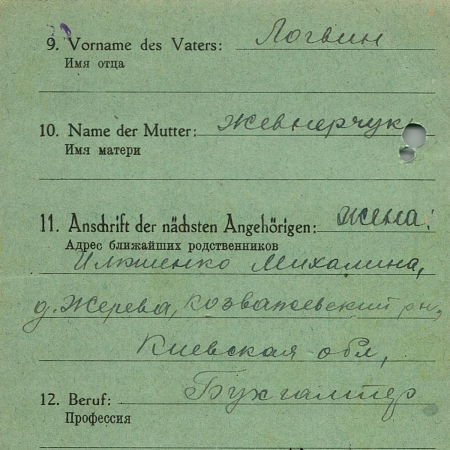 9. Vorname des Vaters: Логвин
Имя отца
10. Name der Mutter: Жевнерчук
Имя матери
11. Anschrift der nächsten Angehörigen: жена:
Адрес ближайших родственников
Илженко Михалина,
д. Жерева, козватевский рн,
Киевская обл,
12. Beruf: Бухгалтер
Профессия